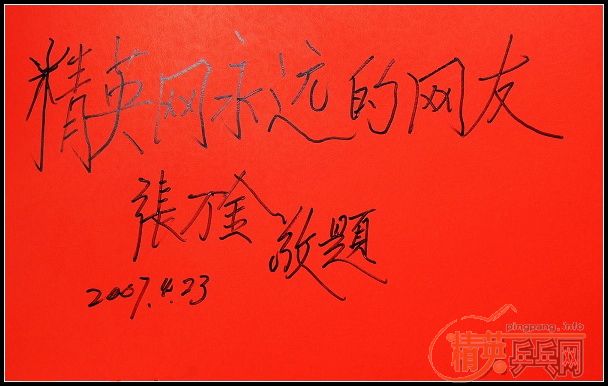 精英网永远的网友
張万金 敬題
2007.4.23
pingpang.info
精英乒乓网